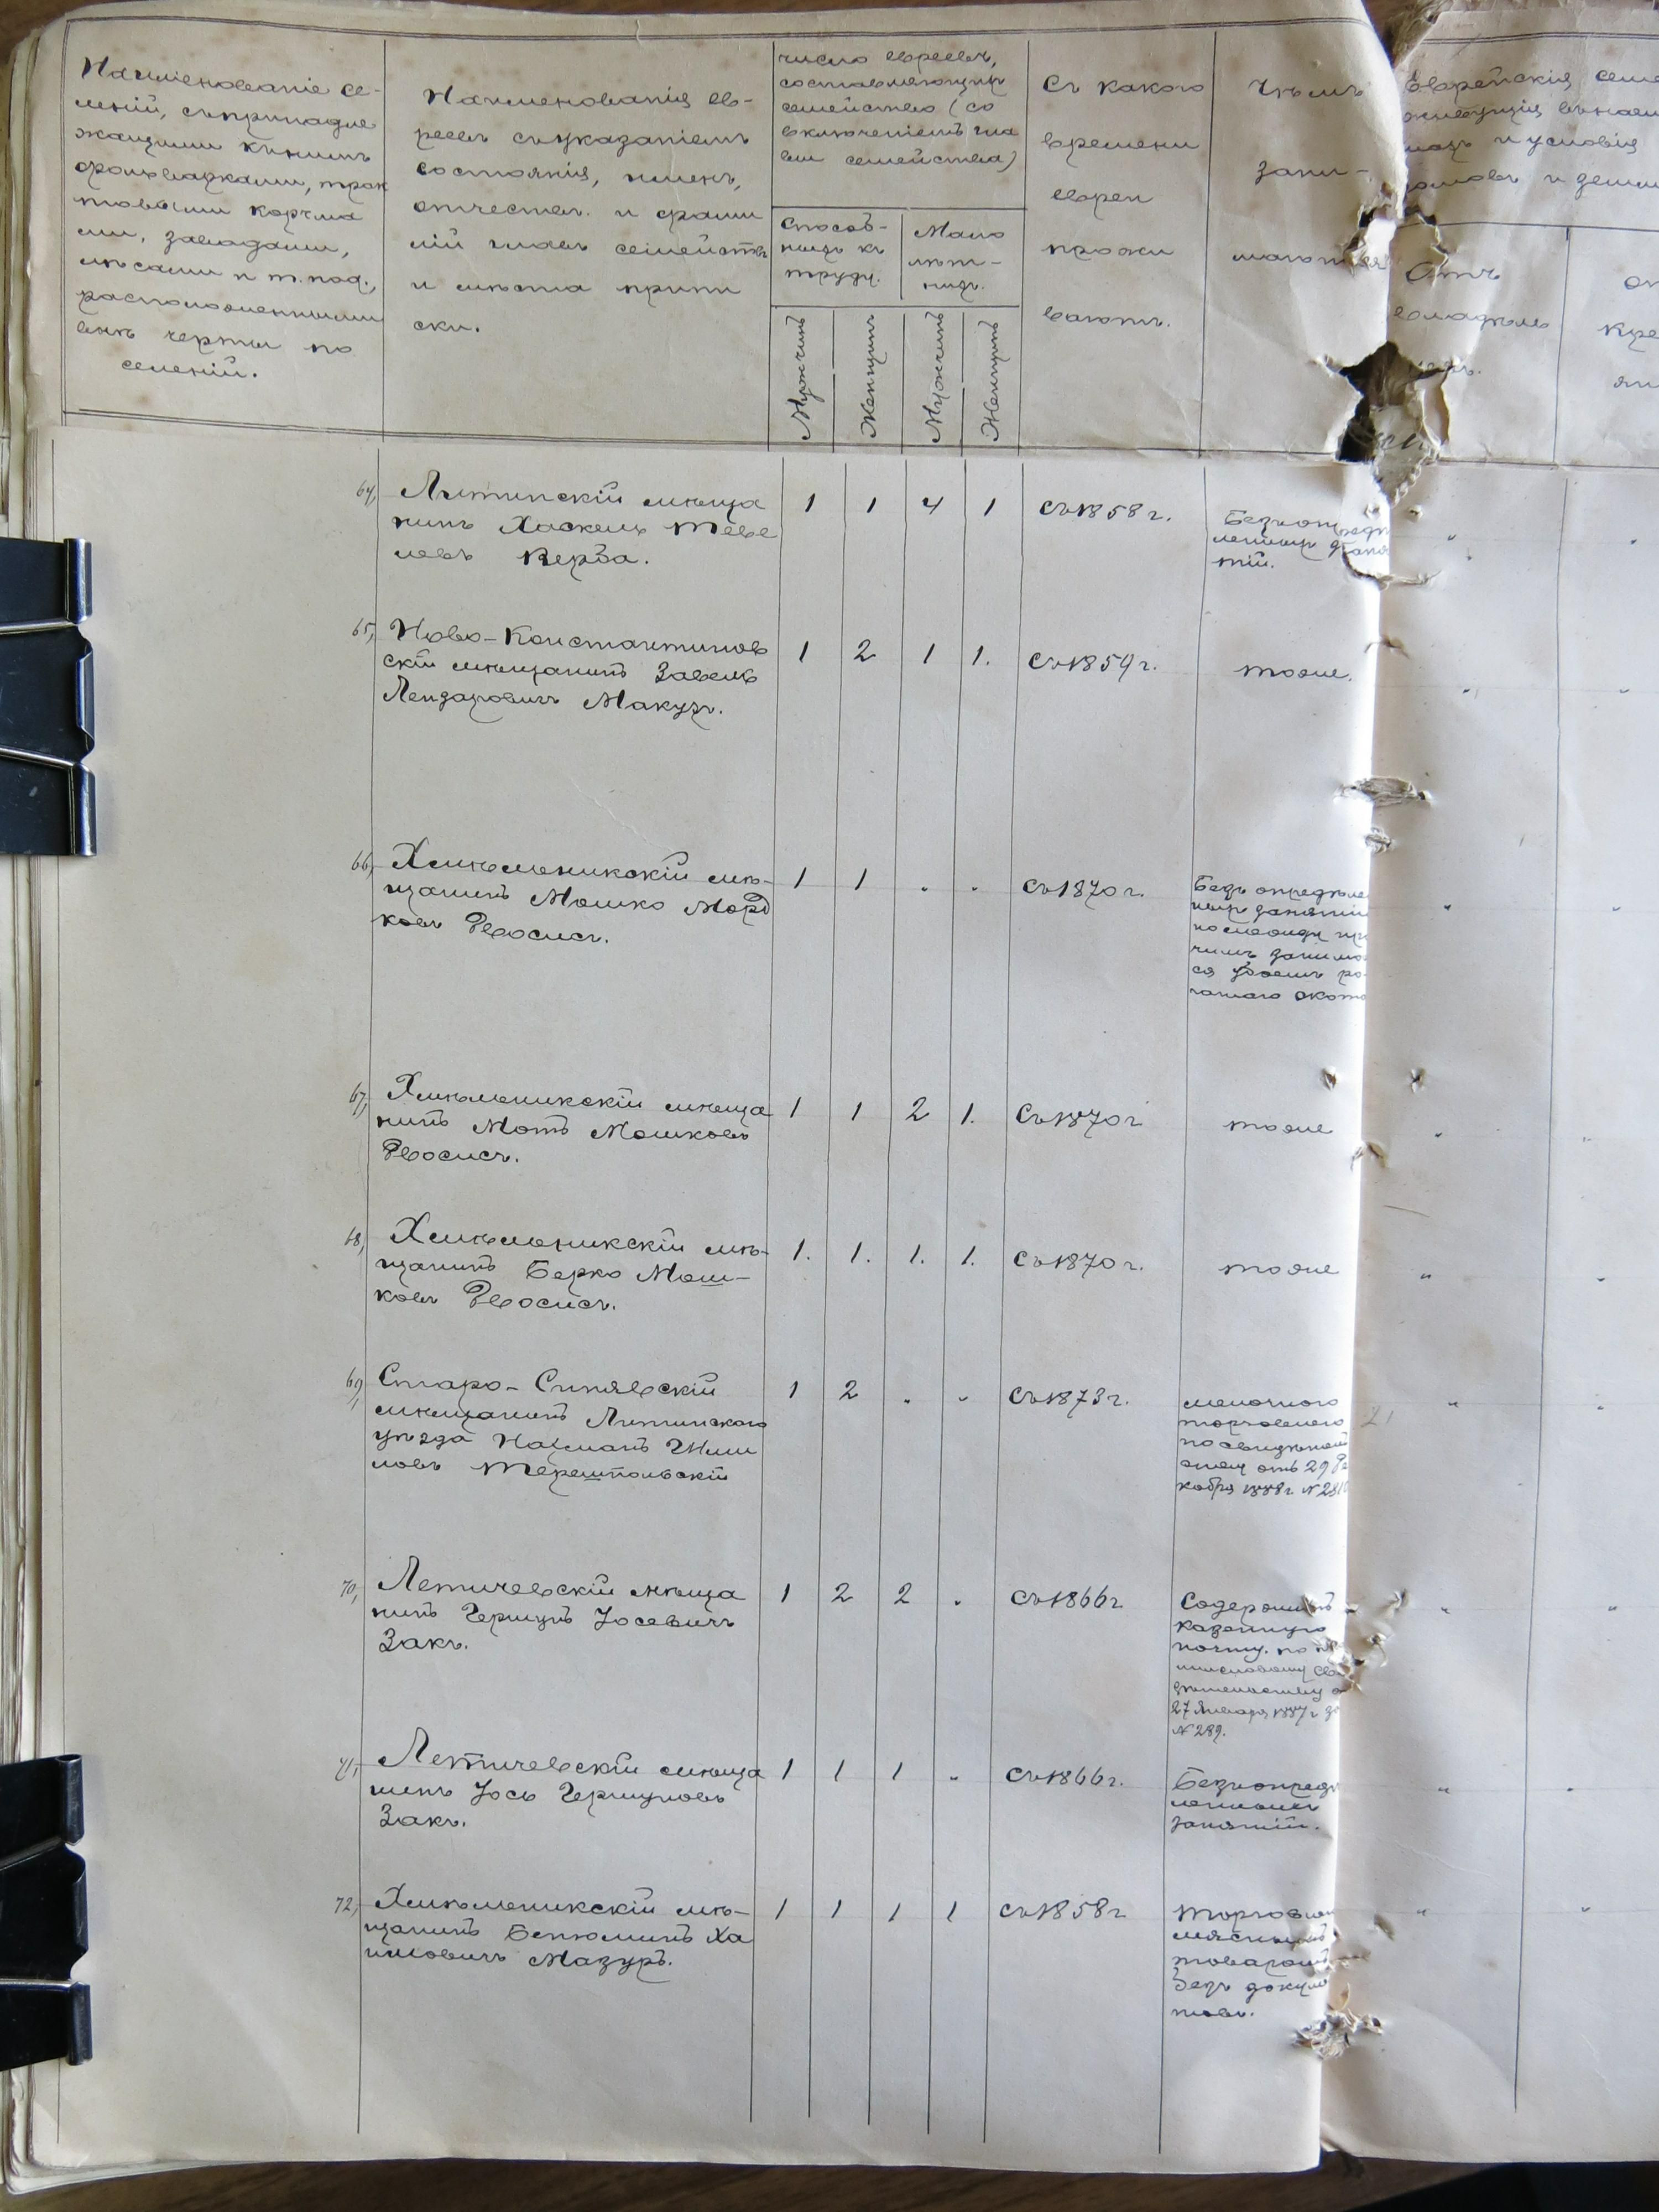 Наименованіе се-
леній, съ принадле
жащими къ нимъ
фольварками, трак
товыми корчма
ми, заводами,
лѣсами и т. под.,
расположенными
внѣ черты по
селеній.
Наименованія ев-
реевъ съ указаніемъ
состоянія, именъ,
отчествъ и фами
лій главъ семействъ
и мѣста припи
ски.
число евреевъ,
составляющихъ
семейство (со
включеніемъ гла
вы семейства)
Способ-
ныхъ къ
труду.
Мало
лѣт-
нихъ.
Мужчинъ
Женщинъ
Мужчинъ
Женщинъ
Съ какого
времени
евреи
прожи
ваютъ.
Чѣмъ
зани-
маются
Еврейскія семе
Отъ
владѣль
64, Литинскій мѣща
нинъ Хаскель Теве
левъ Верба.
1 1 4 1 съ 1858 г.
Безъ опредѣ
ленныхъ заня
тій.
65, Ново-Константинов
скій мѣщанинъ Завель
Лейзаровичъ Макухъ.
1 2 1 1. съ 1859 г. тоже.
66, Хмѣльникскій мѣ-
щанинъ Мошко Морд
ковъ Фвосисъ.
1 1 . . съ 1870 г.
Безъ опредѣле
ныхъ занятій
сл убоемъ ро
гатаго скота
67, Хмѣльникскій мѣща
нинъ Мотъ Мошковъ
Фвосисъ.
1 1 2 1. съ 1870 г тоже
68, Хмѣльникскій мѣ-
щанинъ Берко Мош-
ковъ Фвосисъ.
1. 1. 1. 1. съ 1870 г. тоже
69, Старо-Синявскій
мѣщанинъ Литинскаго
уѣзда Нахманъ
левъ Терешпольскій
1 2 . . съ 1873 г.
мелочною
торговлею
по свидѣтель
ству отъ 29 Де
кабря 1888 г. №
70, Летичевскій мѣща
нинъ Гершунъ Іосевичъ
Закъ.
1 2 2 . съ 1866 г
Содержитъ
казенную
почту. по
27 Января 1887 г за
№ 289.
71, Летичевскій мѣща
нинъ Іось Гершуновъ
Закъ.
1 1 1 . съ 1866 г.
Безъ опредѣ
ленныхъ
занятій.
72, Хмѣльникскій мѣ-
щанинъ Беньюминъ Ха
имовичъ Мазуръ.
1 1 1 1 съ 1858 г
торговлею
мяснымъ
товаромъ
Безъ докуме
товъ.